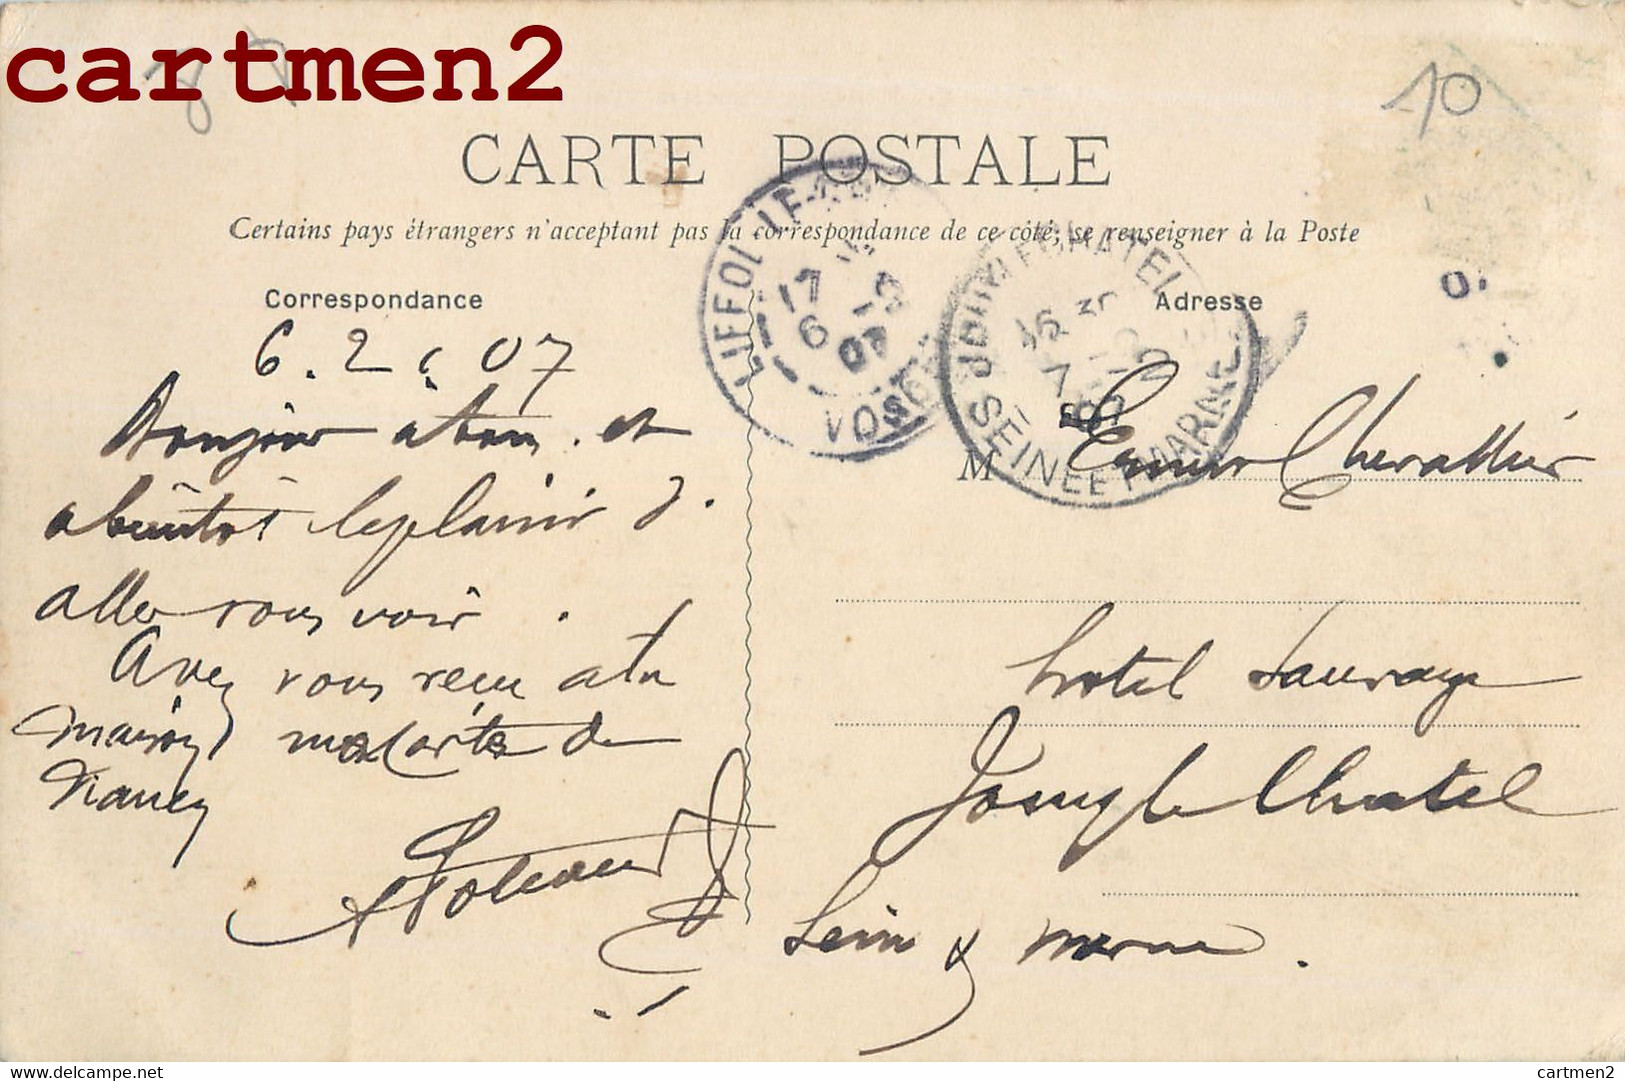 cartmen2
10
CARTE POSTALE
Certains pays étrangers n'acceptant pas la correspondance de ce côté; se renseigner à la Poste
Correspondance
Adresse
LIFFOL-LE-
17
6 -2
07
VOSGES
JOUY-LE-CHATEL
16 30
7 -2
07
SEINE ET MARNE
6.2.07
Bonjour à tous. et
a bientot le plaisir d.
aller vous voir.
Avez vous recu a la
maison ma carte de
Nancy
M Chevallier
hotel Sauvage
Jouy le Chatel
Seine & Marne.
delcampe.net
cartmen2